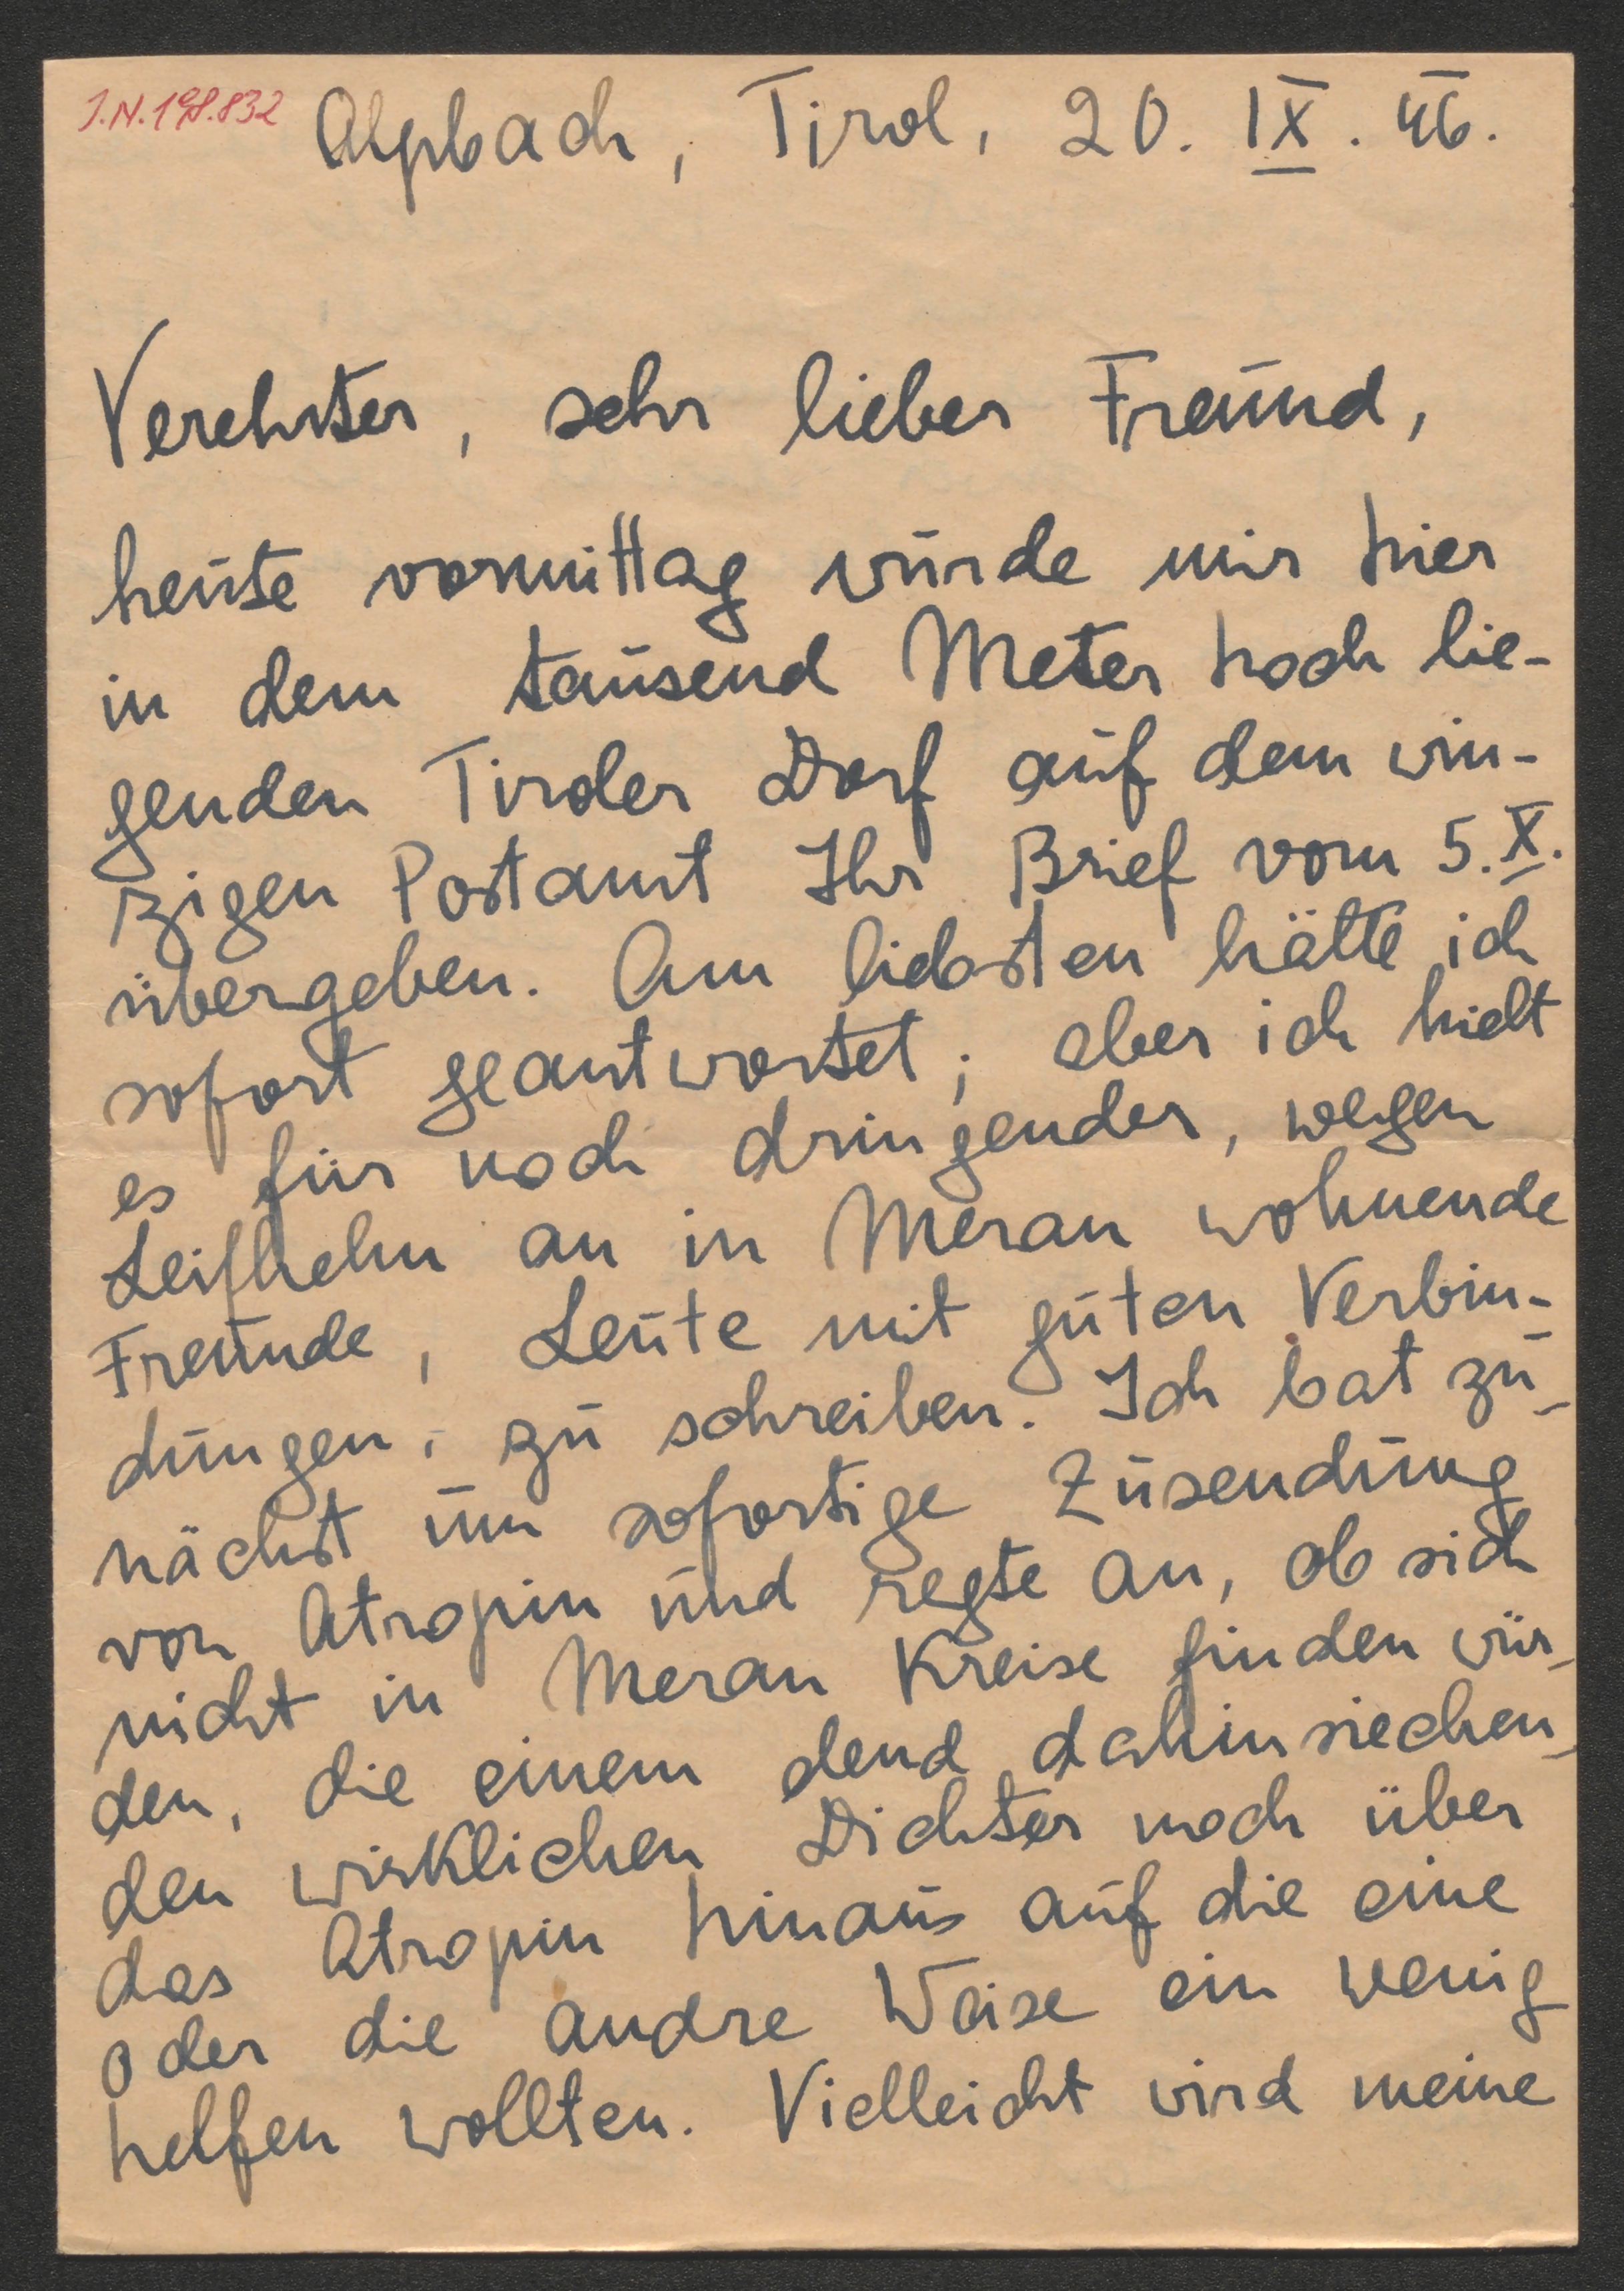 J.N.198.832
Alpbach, Tirol, 20. IX. 46.
Verehrter, sehr lieber Freund,
heute vormittag wurde mir hier
in dem tausend Meter hoch lie-
genden Tiroler Dorf auf dem win-
zigen Postamt Ihr Brief vom 5. X.
übergeben. Am liebsten hätte ich
sofort geantwortet; aber ich hielt
es für noch dringender, wegen
Leifhelm an in Meran wohnende
Freunde, Leute mit guten Verbin-
dungen, zu schreiben. Ich bat zu-
nächst um sofortige Zusendung
von Atropin und regte an, ob sich
nicht in Meran Kreise finden wür-
den, die einem elend dahinsiechen-
den wirklichen Dichter noch über
das Atropin hinaus auf die eine
oder die andre Weise ein wenig
helfen wollten. Vielleicht wird meine